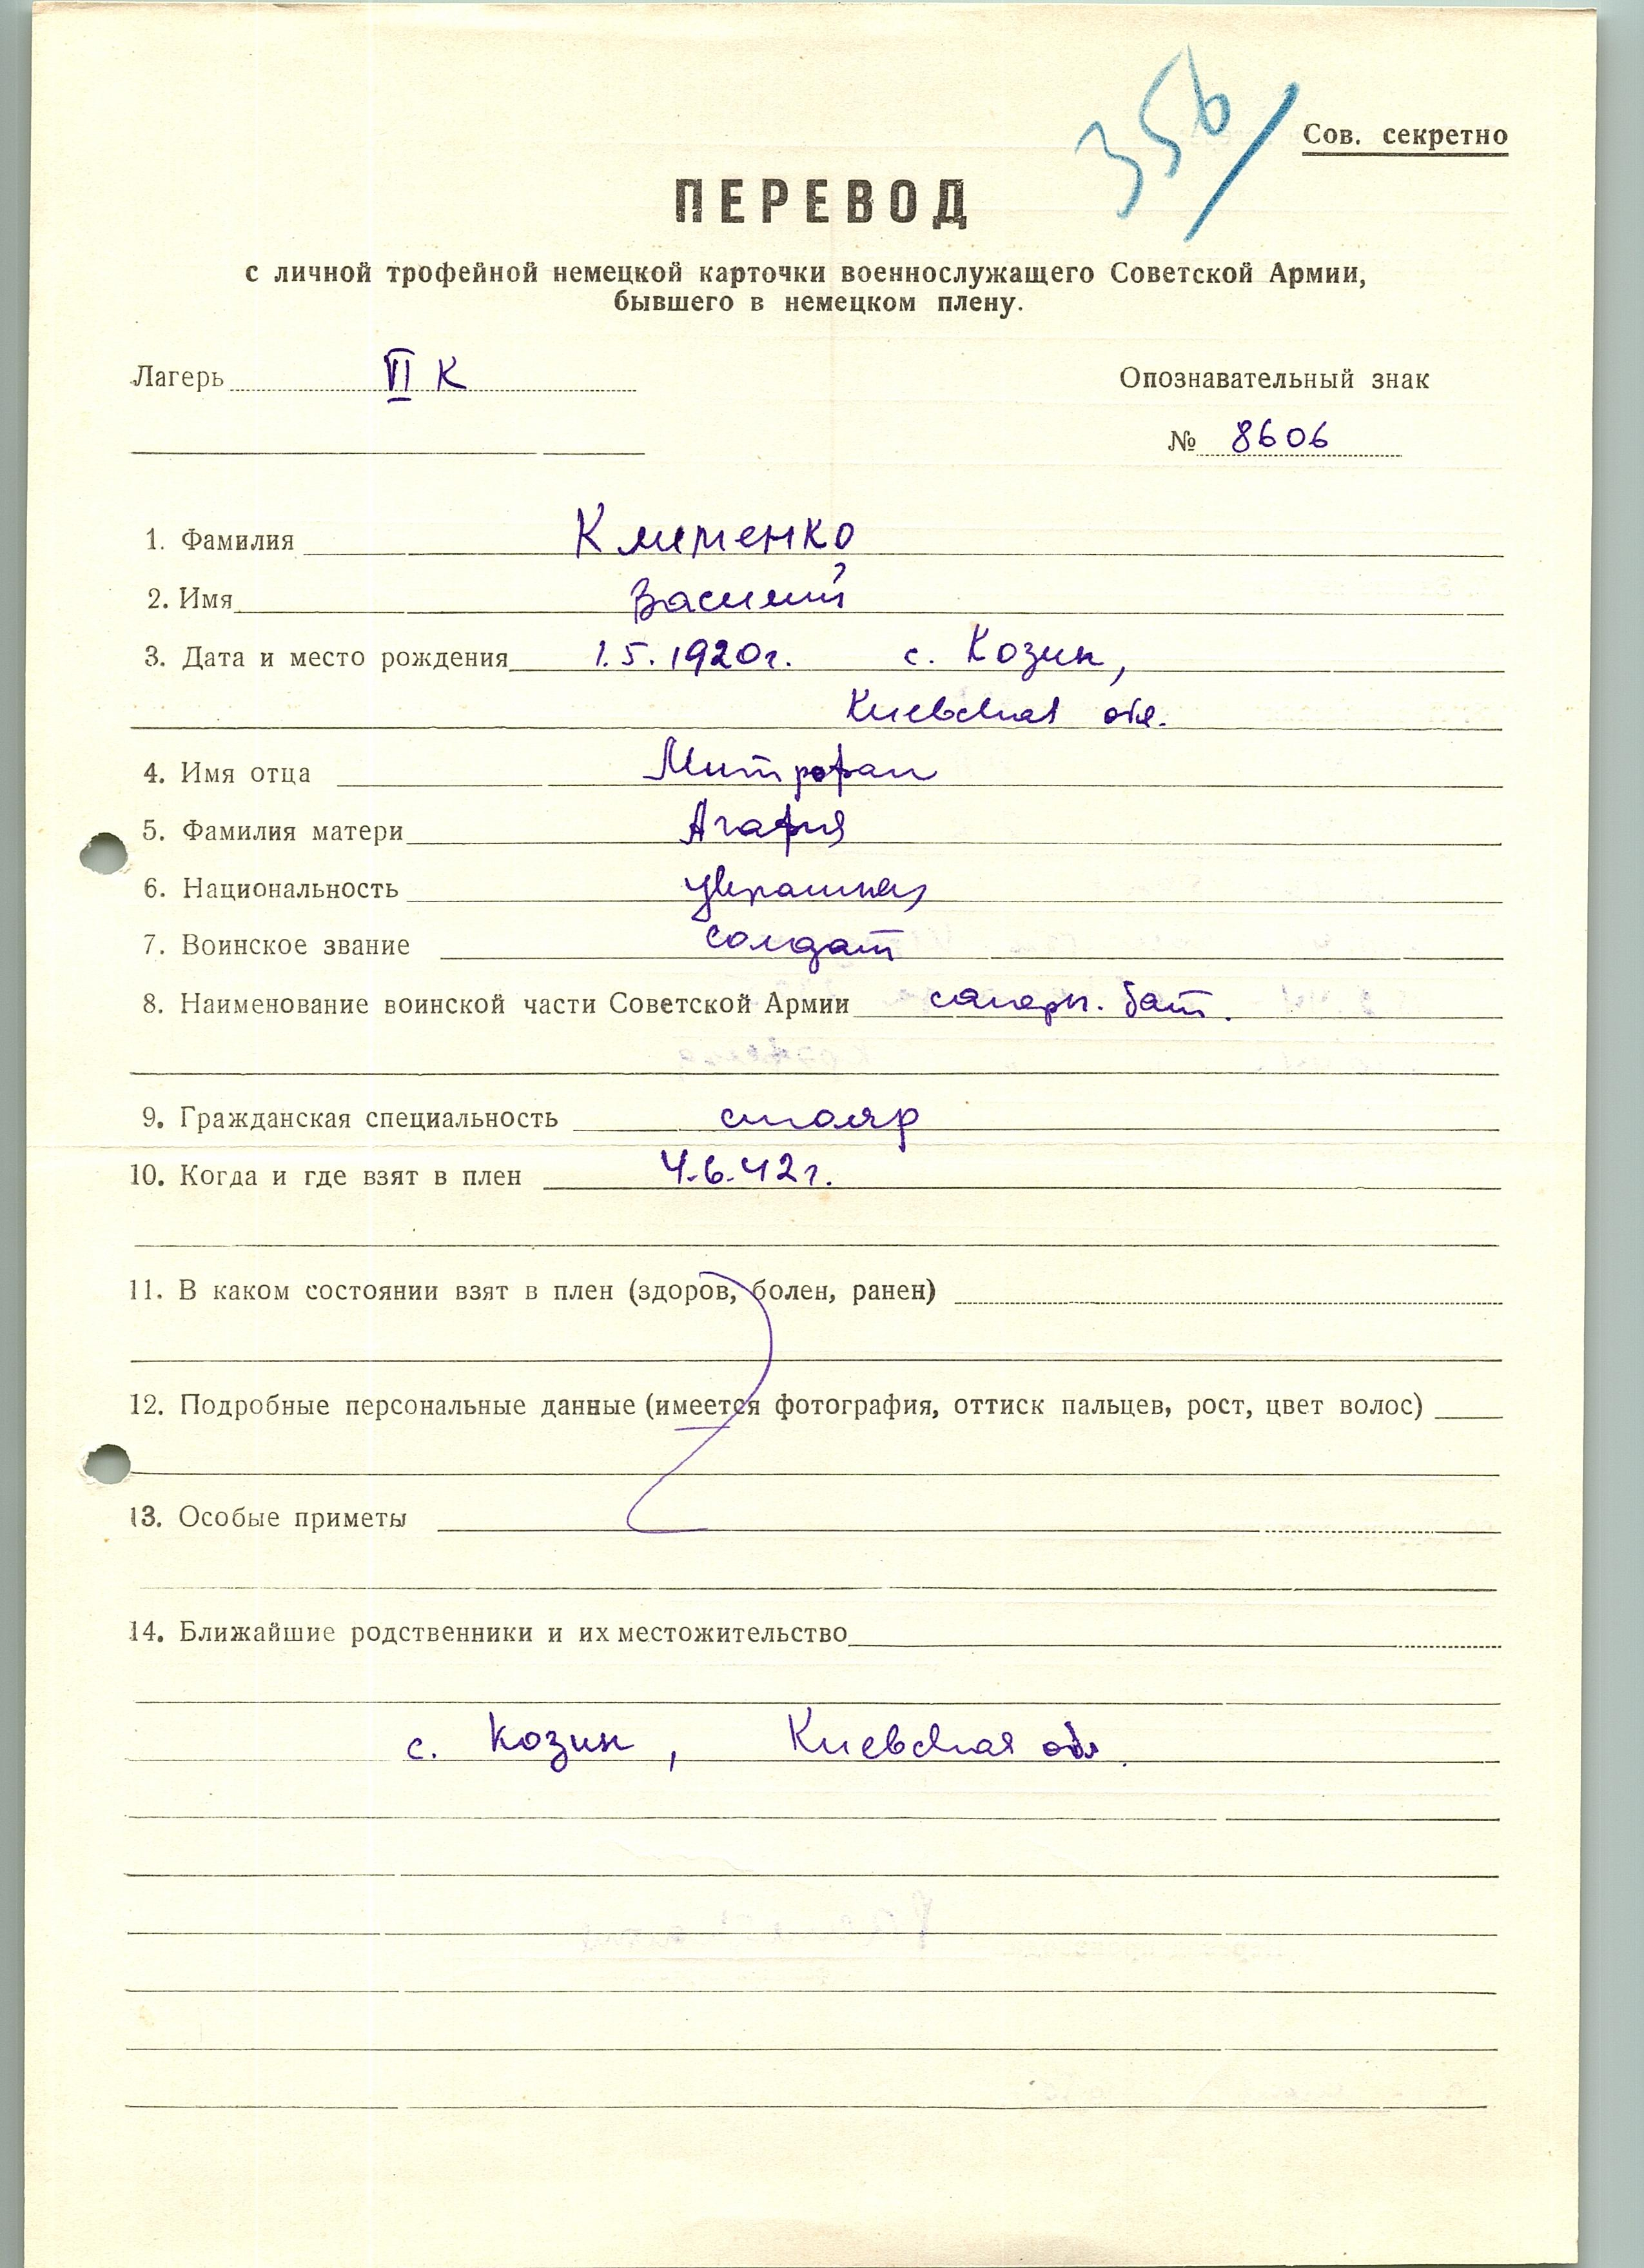 356/
Сов. секретно
ПЕРЕВОД
с личной трофейной немецкой карточки военнослужащего Советской Армии,
бывшего в немецком плену.
Лагерь VI К Опознавательный знак
№ 8606
1. Фамилия Клименко
2. Имя Василий
3. Дата и место рождения 1.5.1920г. с. Козин,
Киевская обл.
4. Имя отца Митрофан
5. Фамилия матери Агафия
6. Национальность украинец
7. Воинское звание солдат
8. Наименование воинской части Советской Армии саперн. бат.
9. Гражданская специальность столяр
10. Когда и где взят в плен 4.6.42г.
11. В каком состоянии взят в плен (здоров, болен, ранен)
12. Подробные персональные данные (имеется фотография, оттиск пальцев, рост, цвет волос)
13. Особые приметы
14. Ближайшие родственники и их местожительство
с. Козин, Киевская обл.